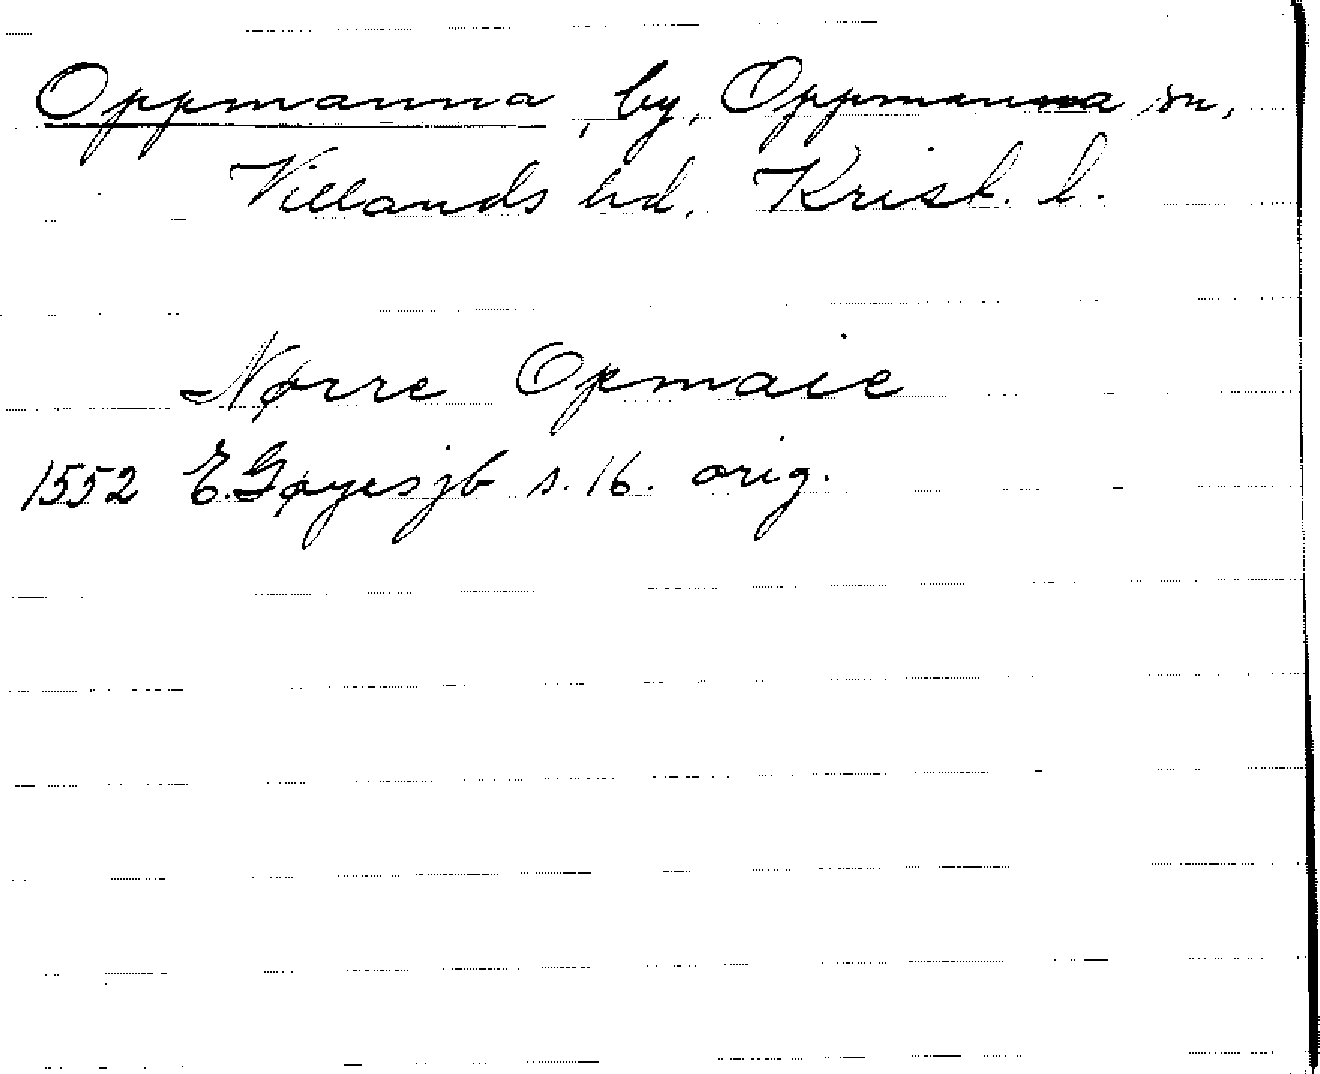 Oppmanna, by, Oppmanna sn,
Villands hd. Krist. l.
Nørre Opmaie
1552 E. Gøyes jb s. 16. orig.